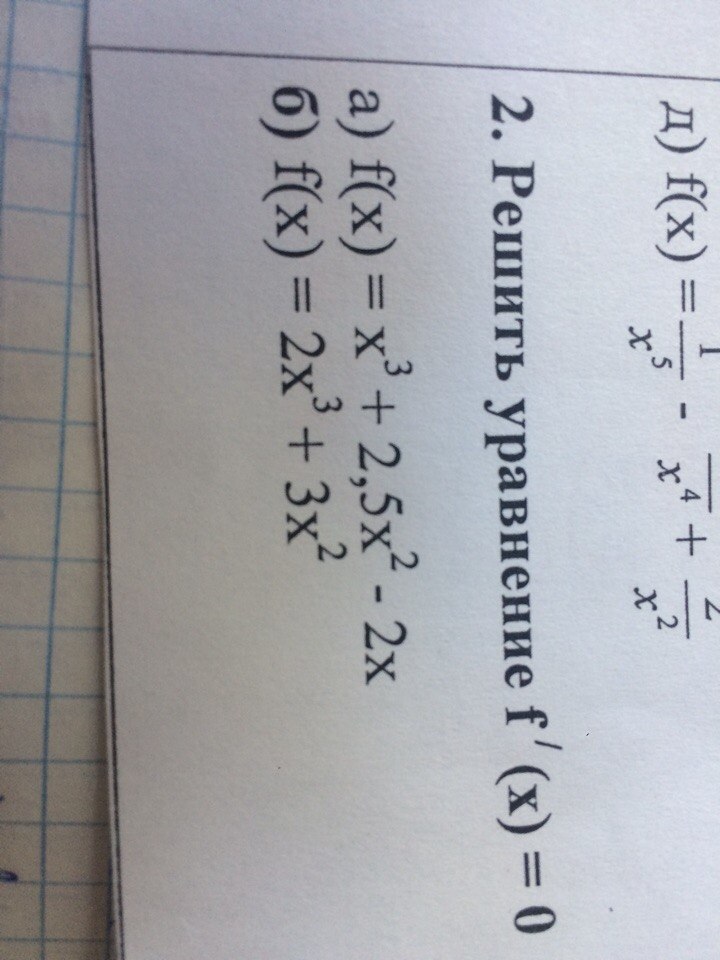 д) f(x) = 1/x⁵ - /x⁴ + 2/x²
2. Решить уравнение f′(x) = 0
а) f(x) = x³ + 2,5x² - 2x
б) f(x) = 2x³ + 3x²